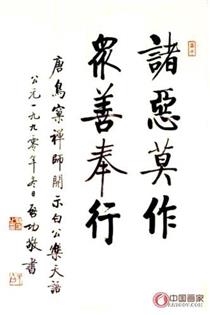 諸惡莫作
眾善奉行
唐鳥窠禪師開示白公樂天語
公元一九九零年冬日啟功敬書
中国画家